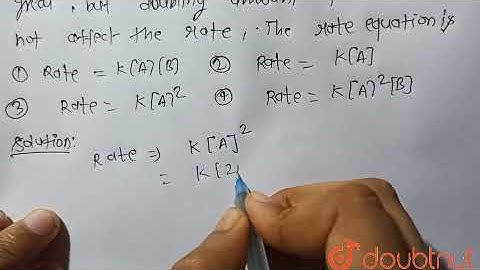 but doubling
not affect the rate, The rate equation is
① Rate = K[A][B] ② Rate = K[A]
③ Rate = K[A]² ④ Rate = K[A]²[B]
Solution:
Rate ⇒ K[A]²
= K[2
doubtnut